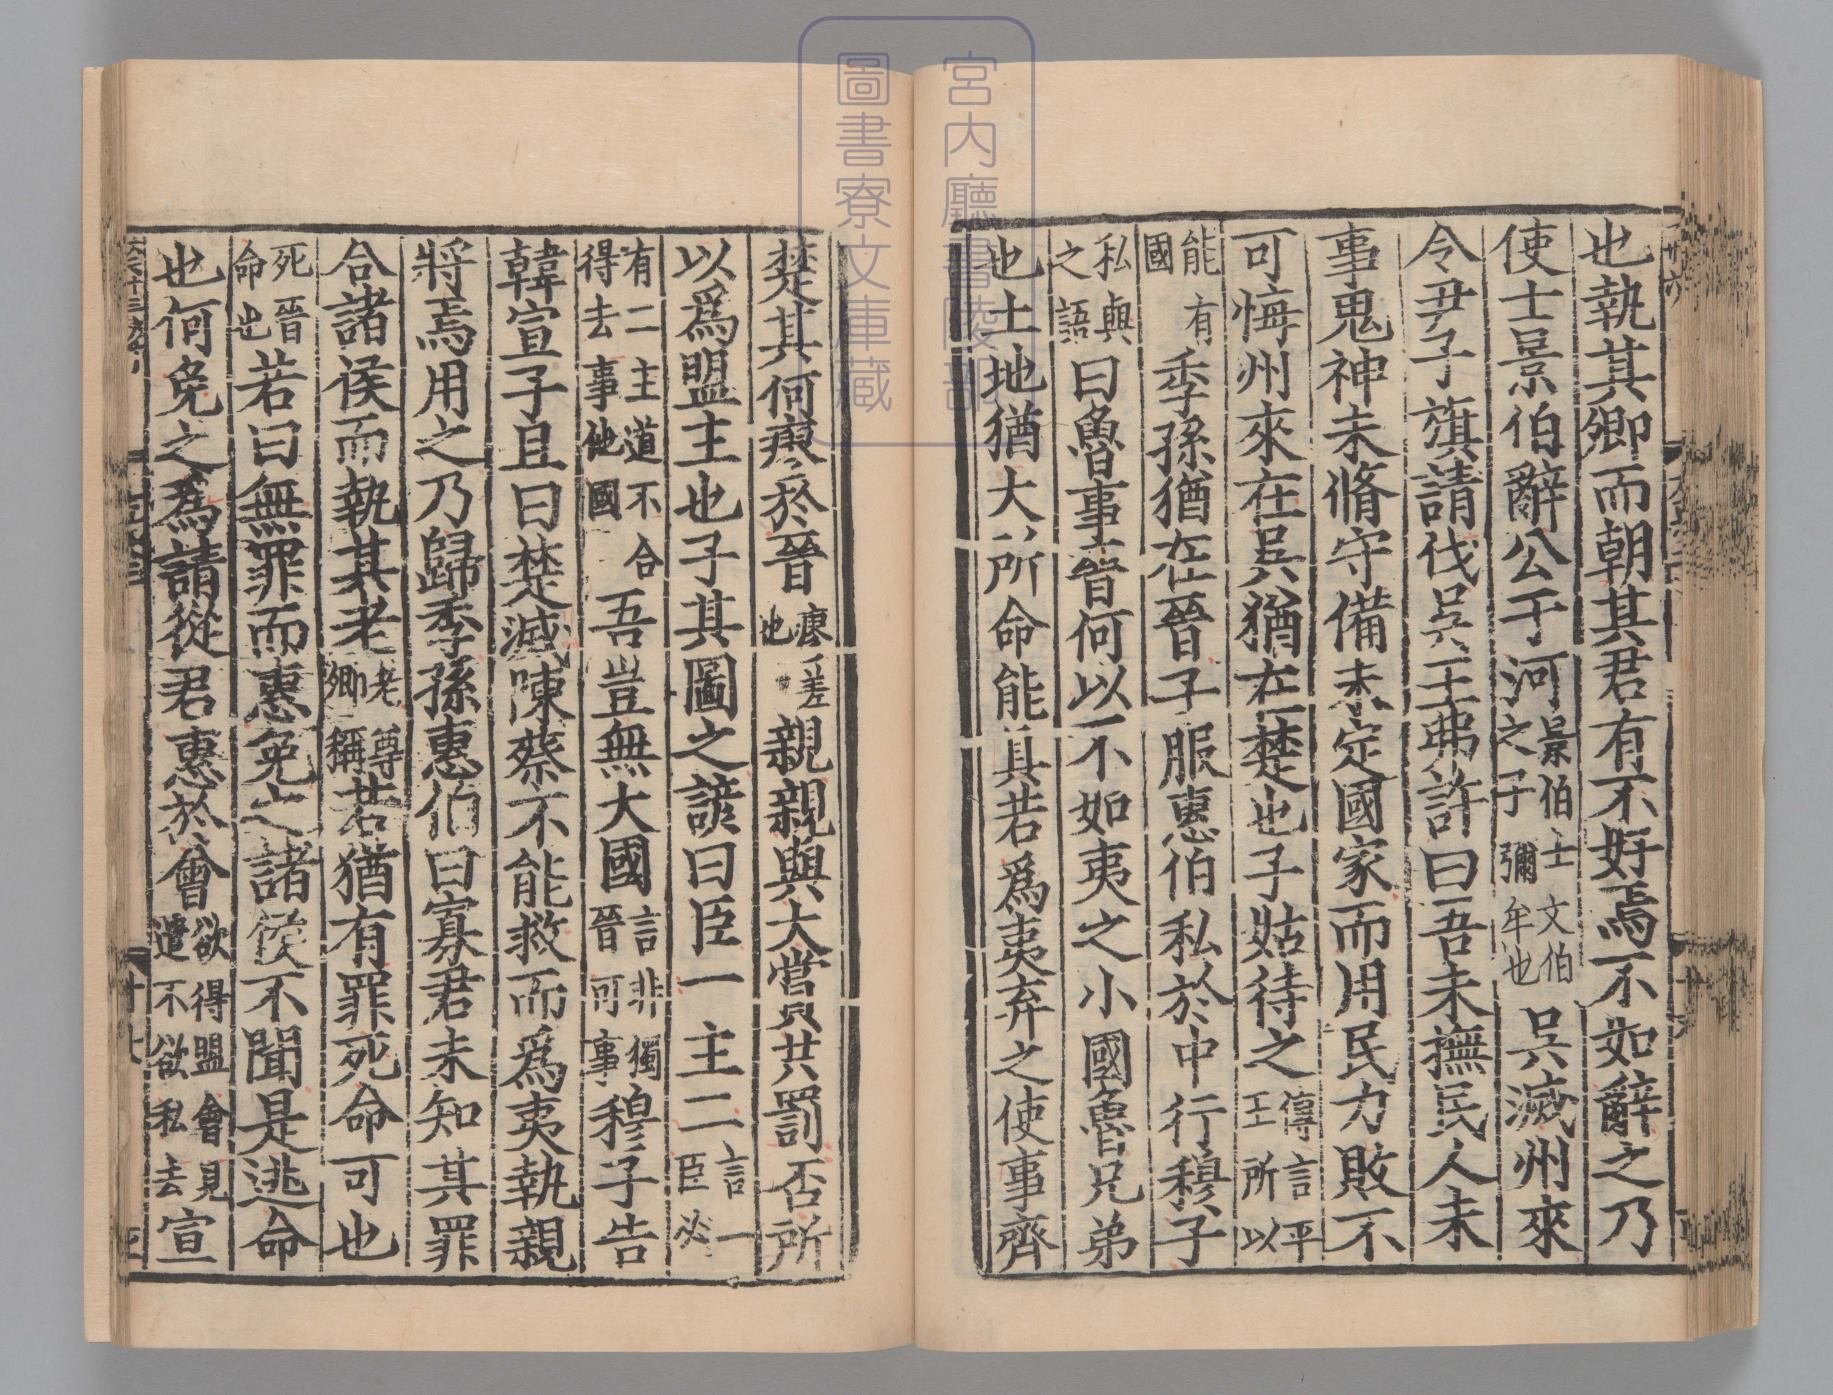 也執其卿而朝其君有不好焉不如辭之乃
使士景伯辭公于河景伯士文伯之子彌牟也吳滅州來
令尹子旗請伐吳王弗許曰吾未撫民人未
事鬼神未脩守備未定國家而用民力敗不
可悔州來在吳猶在楚也子姑待之傳言平王所以
能有國季孫猶在晉子服惠伯私於中行穆子
私與之語曰魯事晉何以不如夷之小國魯兄弟
也土地猶大所命能具若爲夷弃之使事齊
楚其何瘳於晉瘳差也親親與大賞共罰否所
以爲盟主也子其圖之諺曰臣一主二言一臣必
有二主道不合得去事他國吾豈無大國言非獨晉可事穆子告
韓宣子且曰楚滅陳蔡不能救而爲夷執親
將焉用之乃歸季孫惠伯曰寡君未知其罪
合諸侯而執其老老尊卿稱若猶有罪死命可也
死晉命也若曰無罪而惠免之諸侯不聞是逃命
也何免之爲請從君惠於會欲得盟會見遣不欲私去宣
宮内廳書陵部
圖書寮文庫藏